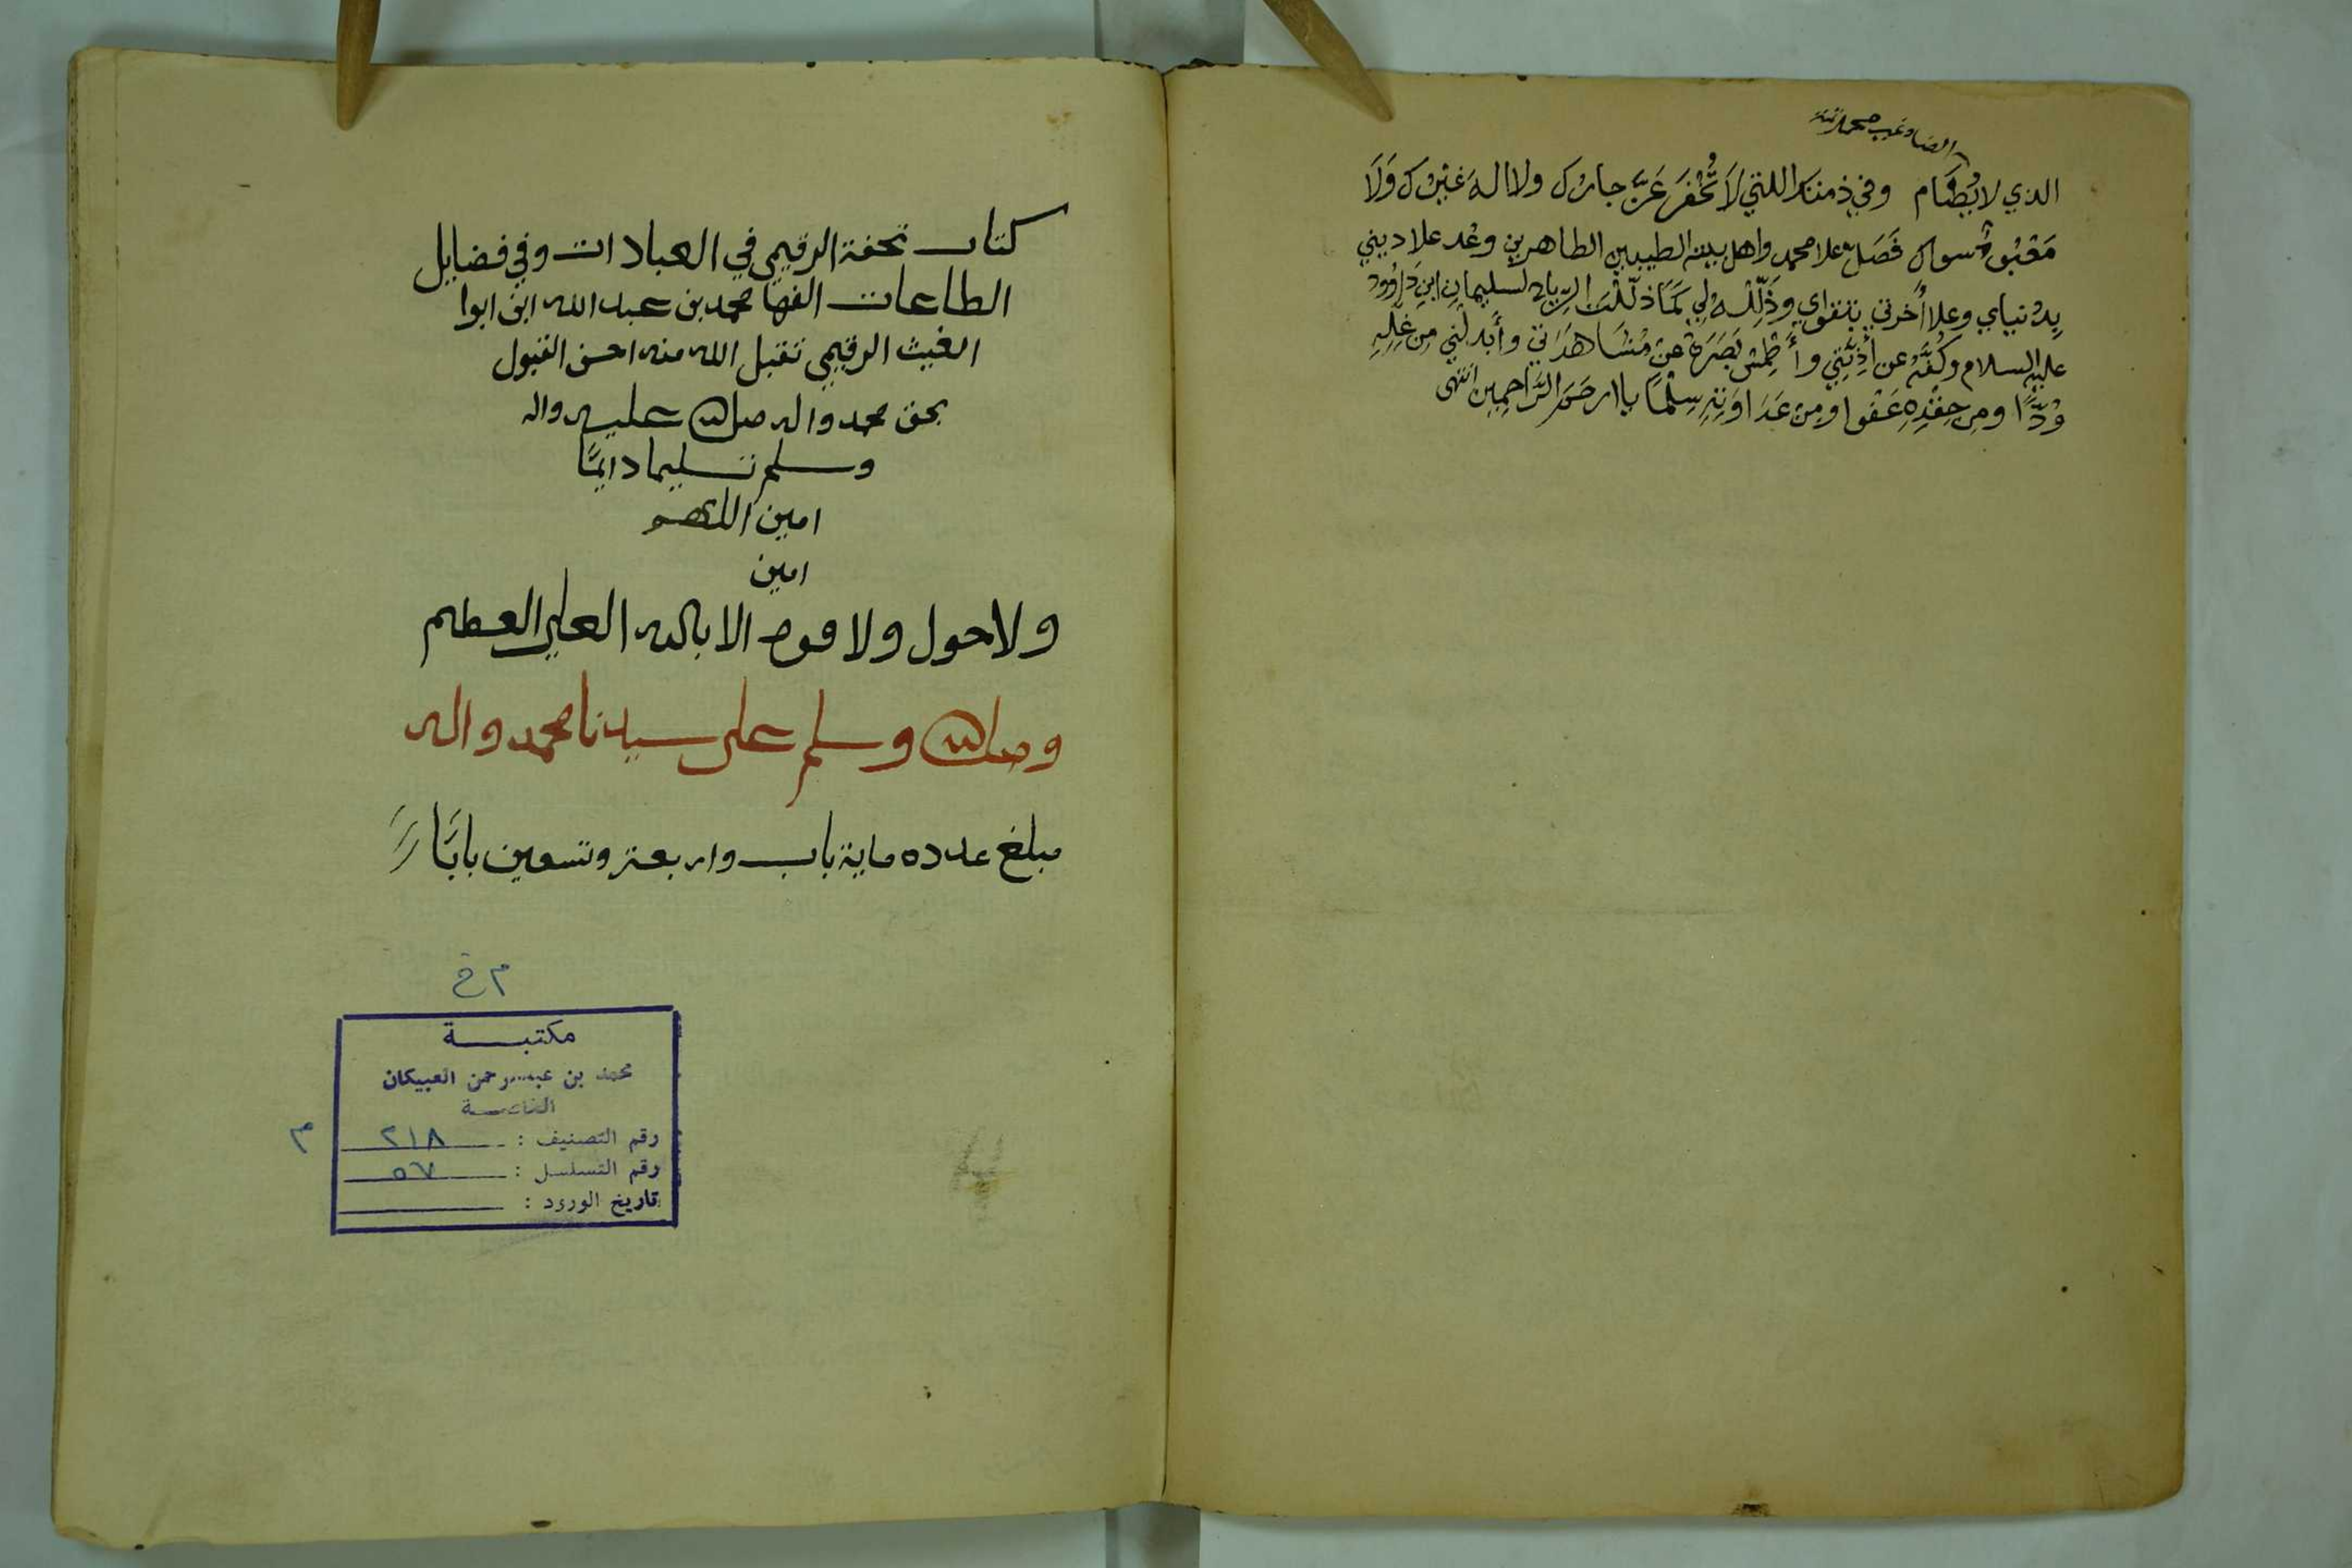 الذي لا يُضَام وفي ذمتك اللتي لَا تُخْفَر عَزَّ جارك ولا اله غيْرك وَلَا
مَعْبُودٌ سواك فَصَلِّ علا محمد واهل بيته الطيبين الطاهرين وعُد علا ديني
بِدُنياي وعلا أُخرتي بتقواي وذَلِّلْـهُ لِي كَمَا ذَلَّلْتَ الرياح لسليمان ابنِ دَاؤود
عليه السلام وكُفَّهُ عن أذِيَّتِي وأَطْمِسْ بَصَرَهُ عن مُشَاهَدَاتي وأَبْدلْني مِن غِلِّهِ
وُدًّا ومِن حِقْدِهِ عَفْوا ومن عَدَاوَتِهِ سِلْمًا ياارحَمَ الرَّاحِمِين انتهى
كتاب تحفة الرقيمي في العبادات وفي فضايل
الطاعات الفها محمد بن عبد الله ابن ابوا
الغيث الرقيمي تقبل الله منه احسن القبول
بحق محمد واله صلى الله عليه واله
وسلم تسليما دايمًا
امين اللهم
امين
ولا حول ولا قوة الا بالله العلي العظيم
وصلى الله وسلم على سيدنا محمد واله
مبلغ عدده ماية باب واربعة وتسعين بابًا
م خ
مكتبـــة
محمد بن عبدالرحمن العبيكان
الخاصـة
رقم التصنيف : ٢١٨ م
رقم التسلسل : ٥٧
تاريخ الورود :